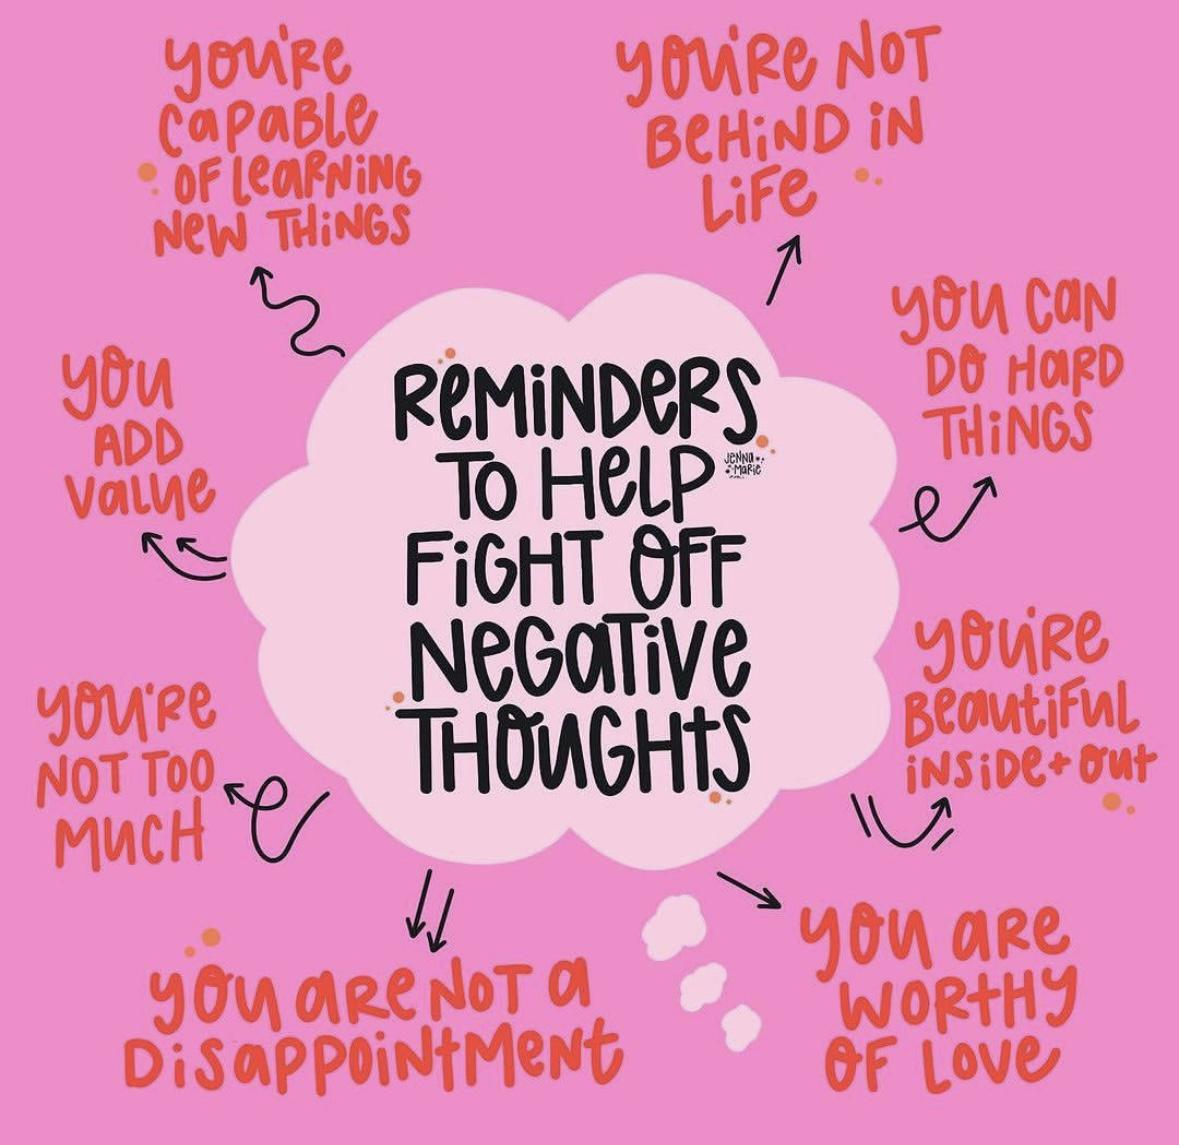 you're
capable
of learning
new things
you're not
behind in
life
you can
do hard
things
you
add
value
Reminders
to help
fight off
negative
thoughts
Jenna
Marie
you're
beautiful
inside + out
you're
not too
much
you are not a
disappointment
you are
worthy
of love